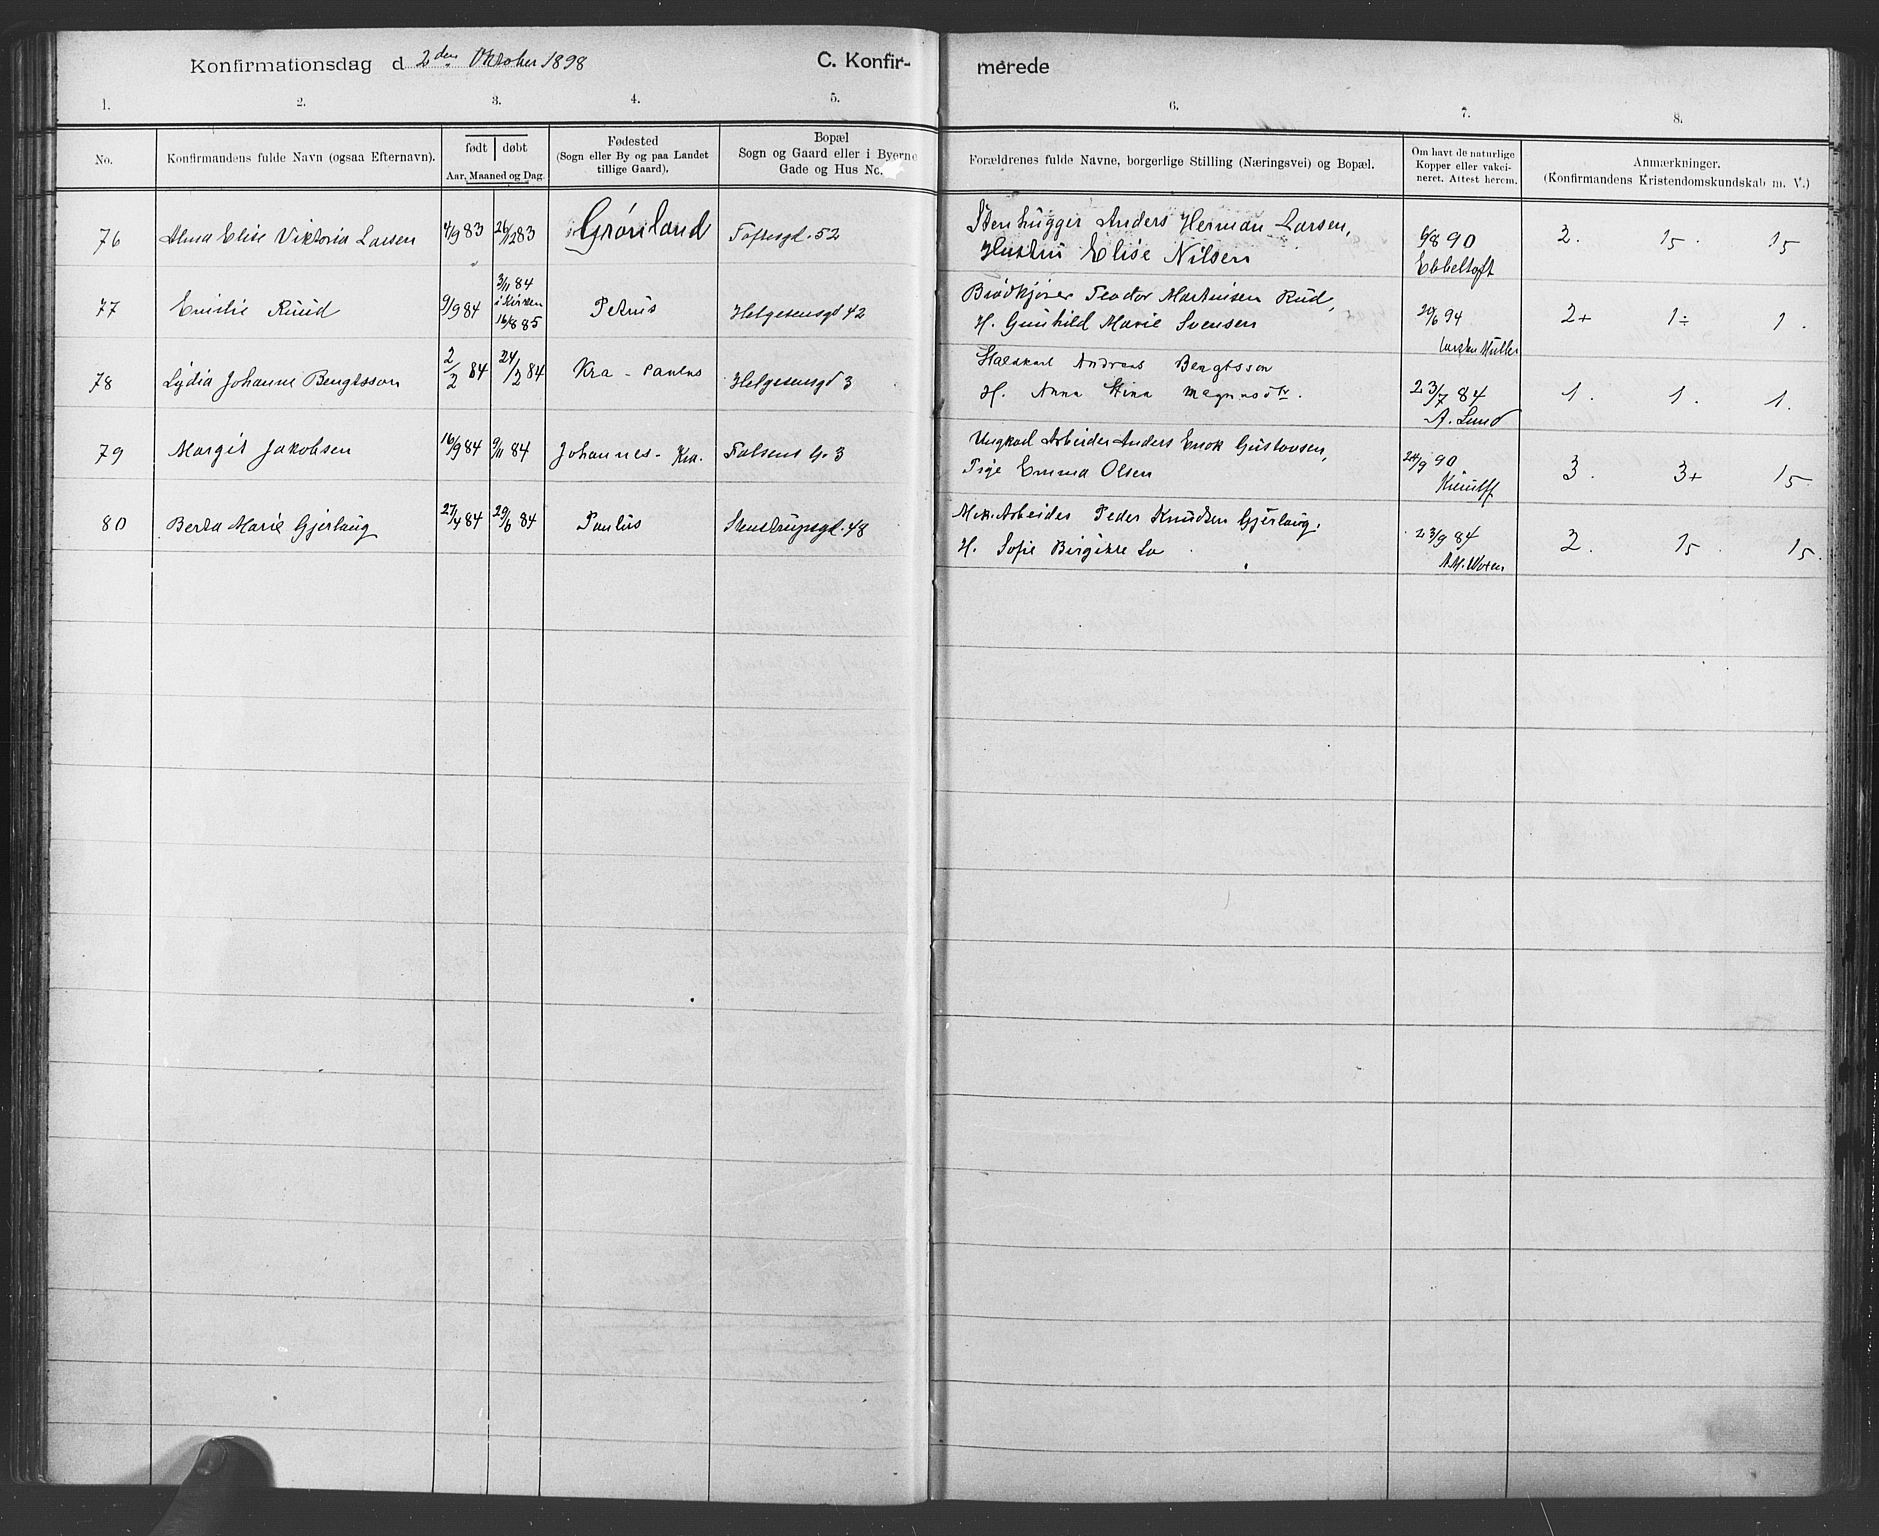 Konfirmationsdag d 2den Oktober 1898
C. Konfir- merede
1. 2. 3. 4. 5. 6. 7. 8.
No.
Konfirmandens fulde Navn (ogsaa Efternavn).
født | døbt
Aar, Maaned og Dag.
Fødested
(Sogn eller By og paa Landet
tillige Gaard).
Bopæl
Sogn og Gaard eller i Byerne
Gade og Hus No.
Forældrenes fulde Navne, borgerlige Stilling (Næringsvei) og Bopæl.
Om havt de naturlige
Kopper eller vakci-
neret. Attest herom.
Anmærkninger.
(Konfirmandens Kristendomskundskab m. V.)
76 Alma Elise Viktoria Larsen 4/9 83 26/12 83 Grønland Toftesgd. 52
Stenhugger Anders Herman Larsen,
Hustru Elise Nilsen
6/8 90
Ebbeltoft
2. 15. 15
77 Emilie Ruud 9/9 84
3/11 84
i Kirken
16/8 85
Petrus Helgesensgd 42
Brødkjører Teodor Martinsen Rud,
H. Gunhild Marie Svensen
29/6 94
Müller
2+ 1÷ 1.
78 Lydia Johanne Bengtsson 2/2 84 24/2 84 Kra - Paulus Helgesensgd 3
Andreas Bengtsson
H. Anna Stina Magnusdtr.
23/7 84
A. Lund
1. 1. 1.
79 Margit Jakobsen 16/9 84 9/11 84 Johannes - Kra. Falsens G. 3
Ungkarl Arbeider Anders Enok Gustavsen,
Pige Emma Olsen
24/9 90
3. 3+ 15.
80 Berta Marie Gjerlaug 27/4 84 29/6 84 Paulus Steenstrupsgd. 48
Mek. Arbeider Peder Knudsen Gjerlaug.
H. Sofie Birgitte Lo
23/9 84
2. 15. 15.